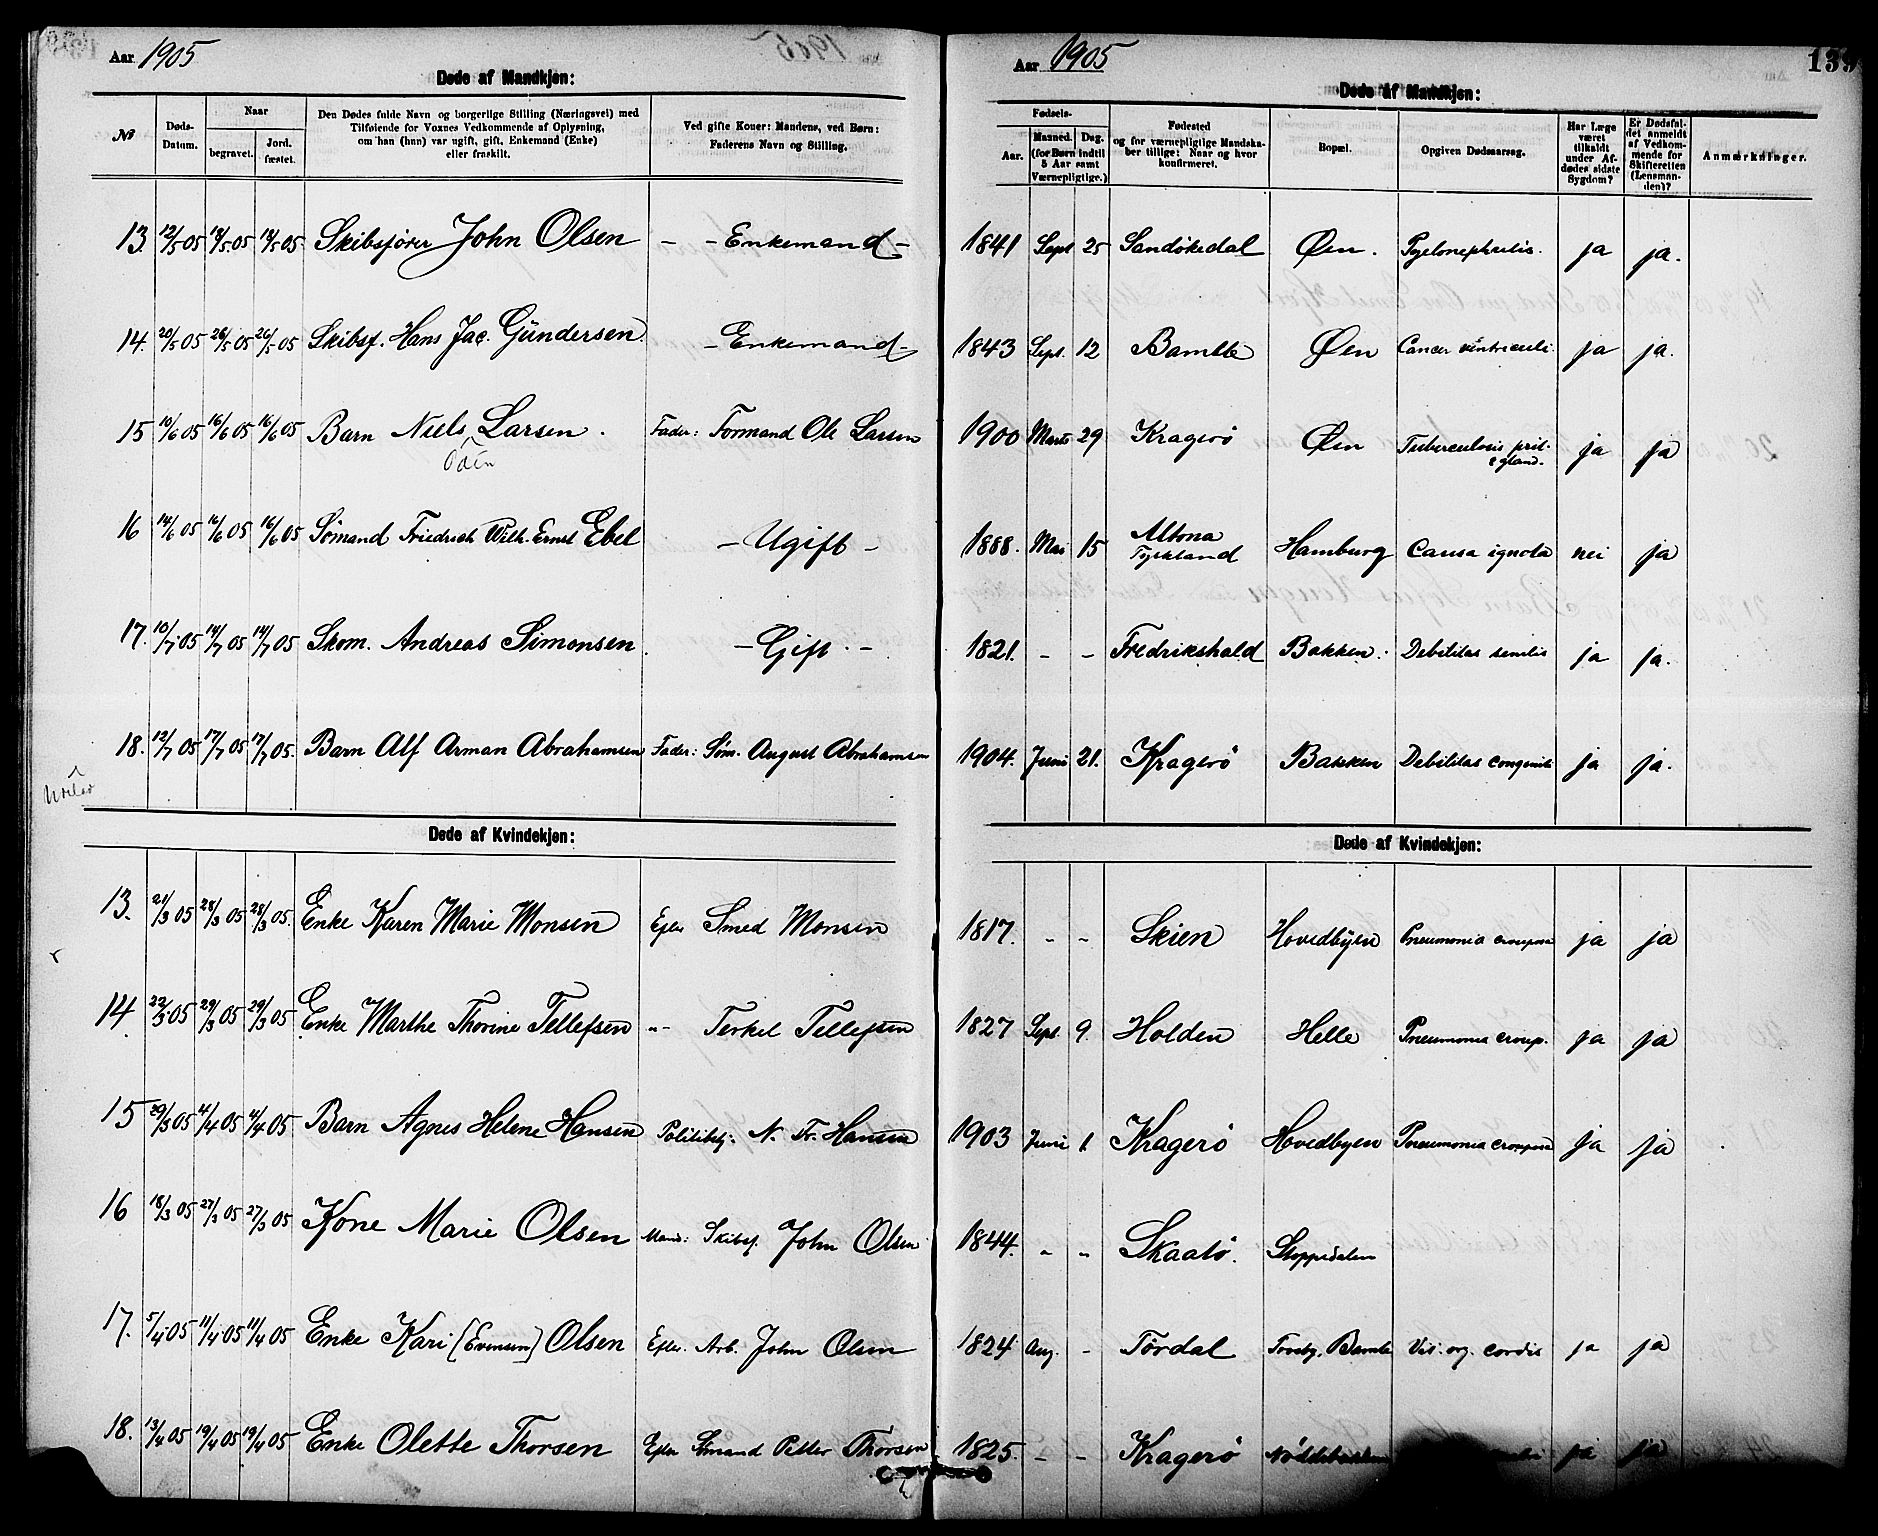 Aar 1905
Døde af Mandkjøn:
№
Døds-Datum.
Naar
begravet.
Jord. fæstet.
Den Dødes fulde Navn og borgerlige Stilling (Næringsvei) med
Tilføiende for Voxnes Vedkommende af Oplysning,
om han (hun) var ugift, gift, Enkemand (Enke)
eller fraskilt.
Ved gifte Koner: Mandens, ved Børn:
Faderens Navn og Stilling.
13 12/5 05 18/5 05 18/5 05 Skibsfører John Olsen – – Enkemand –
14. 20/5 05 26/5 05 26/5 05 Skibsf. Hans Jac. Gundersen. – Enkemand –
15 10/6 05 16/6 05 16/6 05 Barn Niels Larsen. Fader: Formand Ole Larsen
Odin
16 14/6 05 16/6 05 16/6 05 Sømand Friedrich Wilh. Ernst Ebel – Ugift –
17. 10/7 05 14/7 05 14/7 05 Skom. Andreas Simonsen – Gift –
18. 12/7 05 17/7 05 17/7 05. Barn Alf Arman Abrahamsen Fader: Søm. August Abrahamsen
Døde af Kvindekjøn:
13. 21/3 05 28/3 05 28/3 05. Enke Karen Marie Monsen Efter Smed Monsen
14. 22/3 05 29/3 05 29/3 05 Enke Marthe Thorine Tellefsen -"- Terkel Tellefsen
15 29/3 05 4/4 05 4/4 05 Barn Agnes Helene Hansen Politibtj: N. Fr. Hansen
16 18/3 05 27/3 05 27/3 05 Kone Marie Olsen Mand: Skibsf. John Olsen
17. 5/4 05 11/4 05 11/4 05 Enke Kari [Evensen] Olsen Efter. Arb. John Olsen
18. 13/4 05 19/4 05 19/4 05 Enke Olette Thorsen Efter Sømand Petter Thorsen
Aar 1905
139
Døde af Mandkjøn:
Fødsels-
Aar.
Maaned. Dag.
(for Børn indtil
5 Aar samt
Værnepligtige.)
Fødested
og for værnepligtige Mandska-
ber tillige: Naar og hvor
konfirmeret.
Bopæl.
Opgiven Dødsaarsag.
Har Læge
været
tilkaldt
under Af-
dødes sidste
Sygdom?
Er Dødsfal-
det anmeldt
af Vedkom-
mende for
Skifteretten
(Lensman-
den)?
Anmærkninger.
1841 Sept 25 Sandøkedal Øen. Pyelonephritis. ja ja.
1843 Sept. 12 Bamble Øen Cancer ventriculi ja ja.
1900 Marts 29 Kragerø Øen Tuberculosis ja ja
& gland.
1888. Mai 15 Altona
Tyskland Hamburg Causa ignota nei ja
1821. – – Fredrikshald Bakken. Debilitas senilis ja ja.
1904. Juni 21. Kragerø Bakken Debilitas congenita ja ja.
Døde af Kvindekjøn:
1817. " " Skien Hovedbyen Pneumonia crouposa ja ja
1827 Sept. 9. Holden Helle Pneumonia croup. ja ja
1903 Juni 1. Kragerø Hovedbyen Pneumonia crouposa ja ja
1844. " " Skaatø. Stoppedalen
1824 Aug. – Tørdal Bamble Vit. org. cordis ja ja
1825. – – Kragerø ja ja